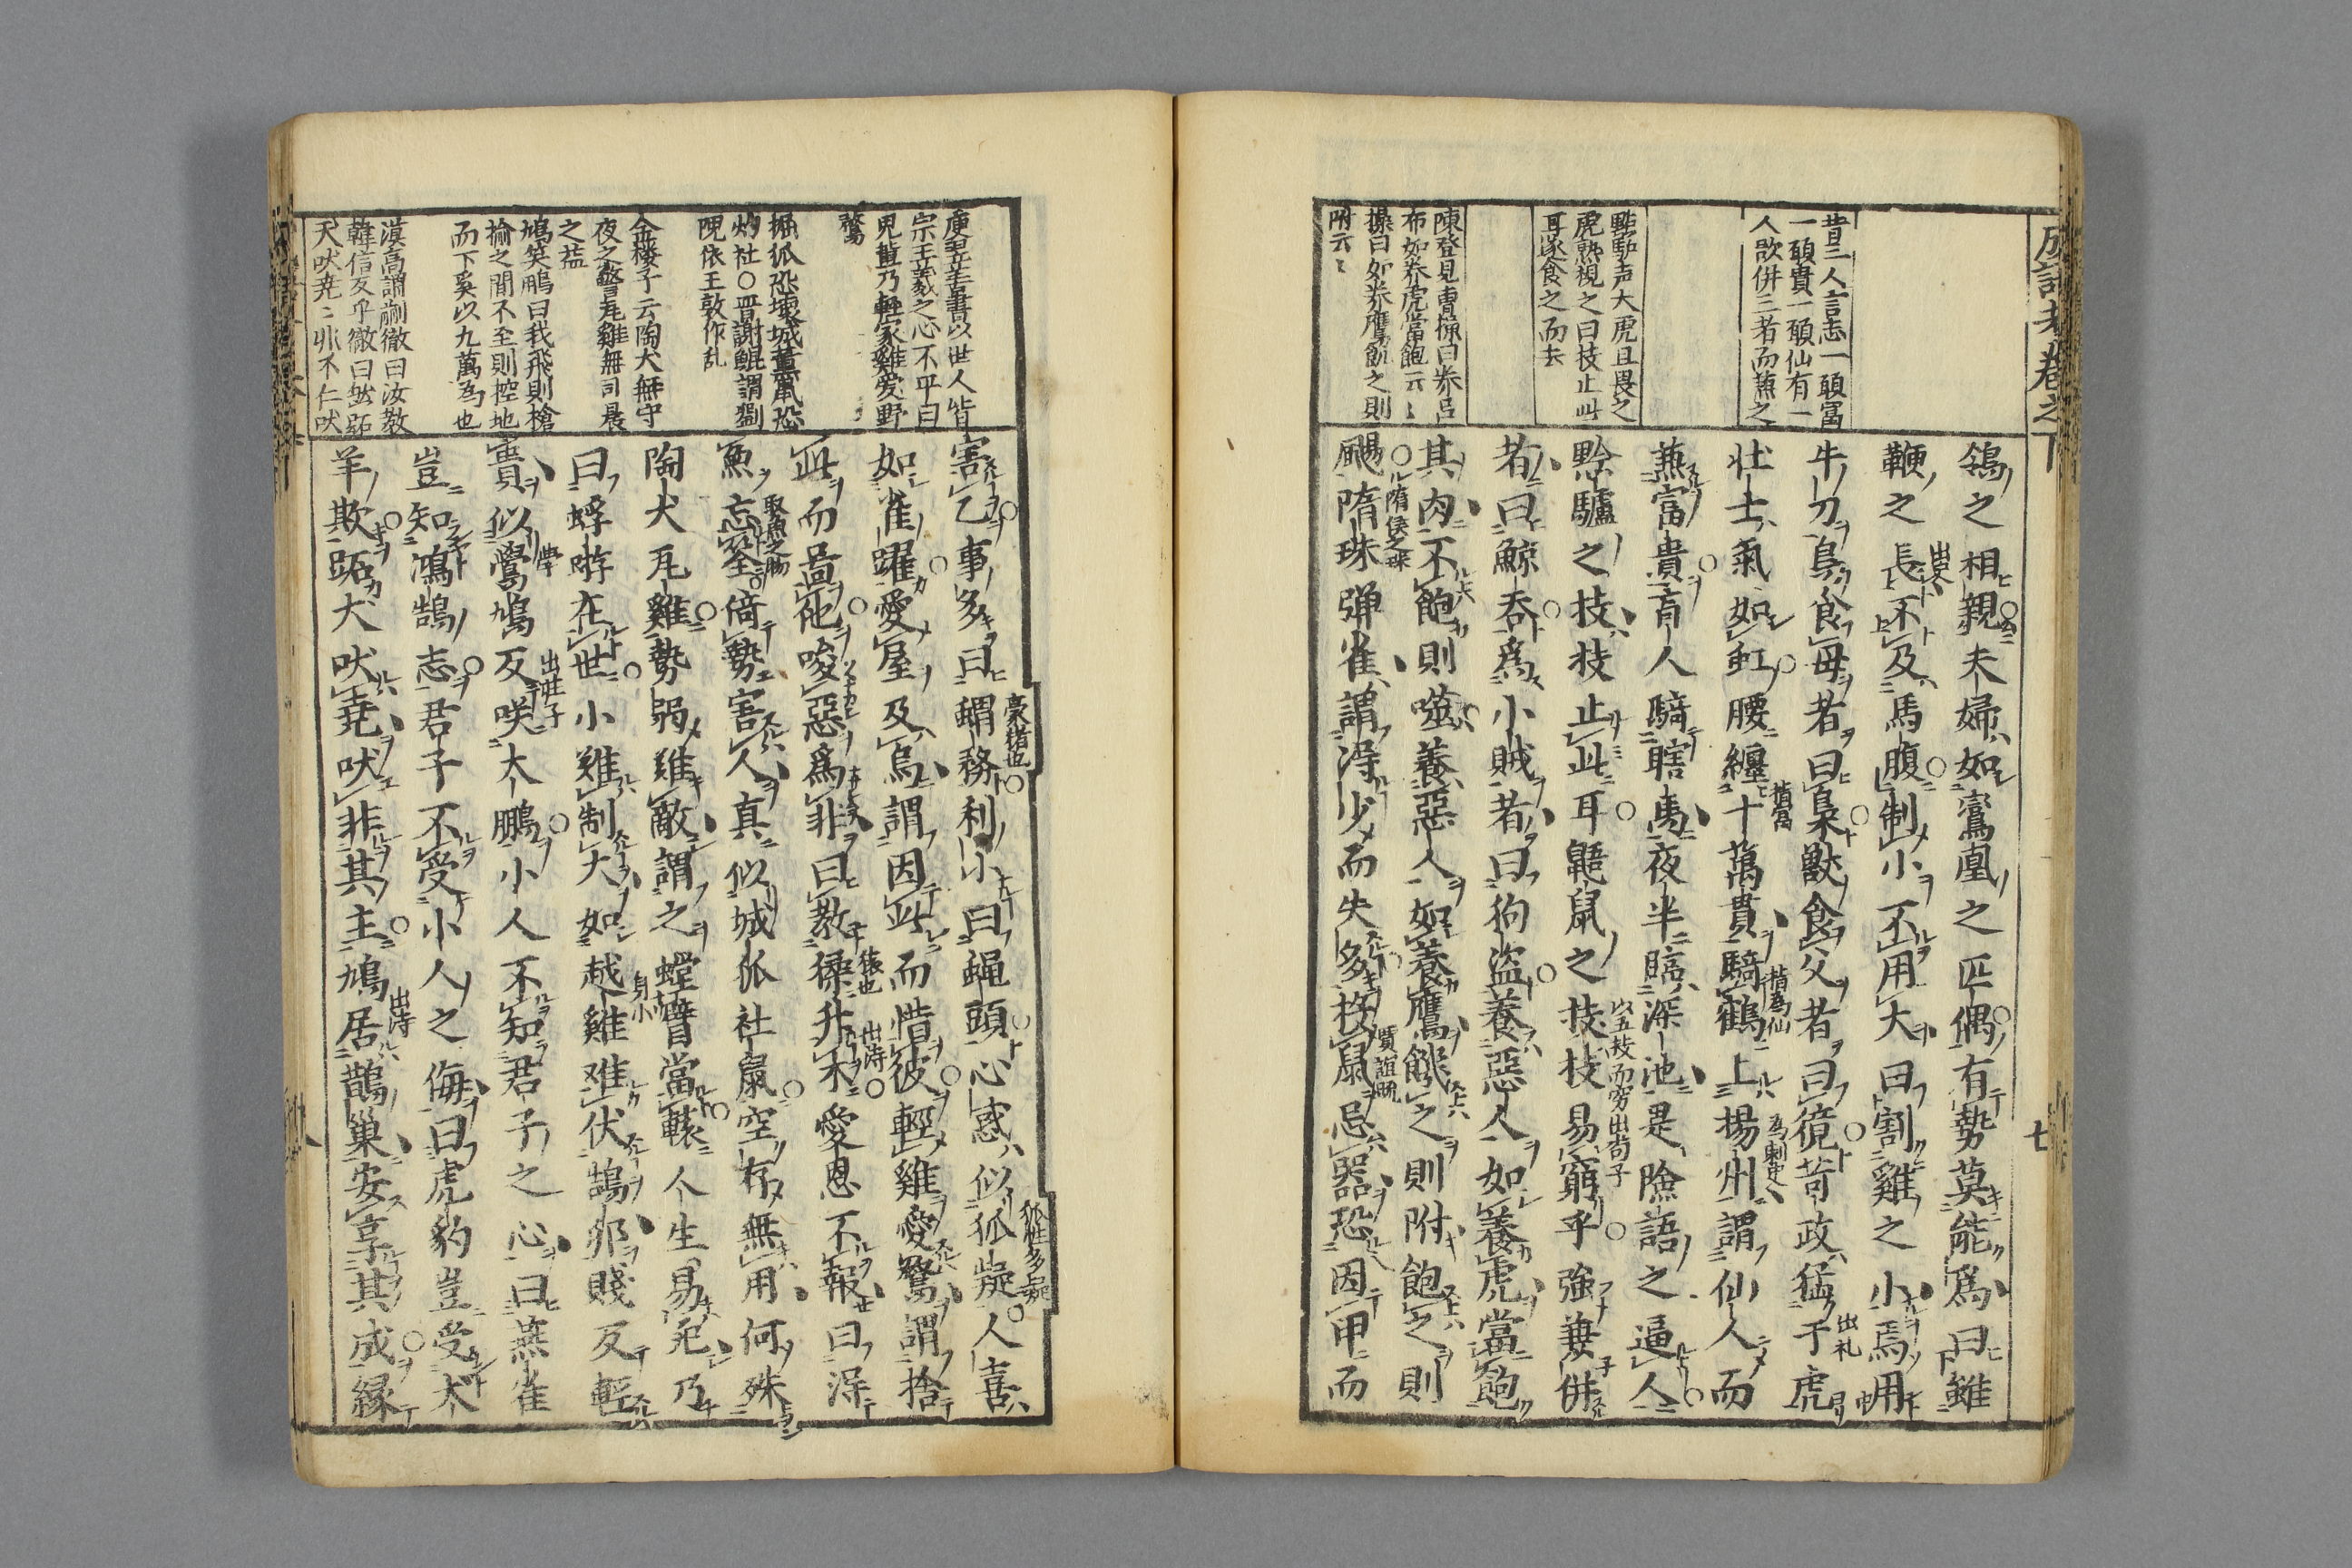 成語考卷之下
七
昔三人言志一願富
一願貴一願仙有一
人歐併三者而兼之
黔驢声大虎且畏之
虎熟視之曰技止此
耳遂食之而去
陳登見曹操曰养呂
布如养虎當飽云々
操曰如养鷹飢之則
附云々
鴒之相親夫婦如鸞凰之匹偶有勢莫能爲曰雖
鞭之長不及馬腹制小不用大曰割雞之小焉用
牛刀鳥食母者曰梟獸食父者曰獍苛政猛于虎
壮士氣如虹腰纏十萬貫騎鶴上揚州謂仙人而
兼富貴盲人騎瞎馬夜半臨深池是險語之逼人
黔驢之技技止此耳鼯鼠之技技易窮乎強兼併
者曰鯨吞爲小賊者曰狗盗養惡人如養虎當飽
其肉不飽則噬養惡人如養鷹飢之則附飽之則
颺隋珠弾雀謂得少而失多投鼠忌器恐因甲而
指富
指為仙
為刺史
出礼
以五技而窮出荀子
隋侯之珠
賈誼䟽
庾翼善書以世人皆
宗王羲之心不平曰
児輩乃輕家雞愛野
鶩
掘狐恐壊城薫鼠恐
灼社○晋謝鯤謂劉
隗依王敦作乱
金楼子云陶犬無守
夜之警瓦雞無司晨
之益
鳩笑鵬曰我飛則槍
揄之間不至則控地
而下奚以九萬為也
漢高謂蒯徹曰汝教
韓信反乎徹曰然跖
犬吠尭々非不仁吠
害乙事多曰蝟務利小曰蝿頭心惑似狐疑人喜
如雀躍愛屋及烏謂因此而惜彼輕雞愛鶩謂捨
此而啚他唆惡爲非曰教猱升木愛恩不報曰得
魚忘筌倚勢害人真似城狐社鼠空存無用何殊
陶犬瓦雞勢弱難敵謂之螳臂當轅人生易死乃
曰蜉蝣在世小難制大如越雞难伏鵠卵賤反輕
貴似鷽鳩反咲大鵬小人不知君子之心曰燕雀
豈知鴻鵠志君子不受小人之侮曰虎豹豈受犬
羊欺跖犬吠尭吠非其主鳩居鵲巢安享其成縁
豪猪也
狐性多疑
猿也
出詩
取魚之物
身小
出荘子
出詩